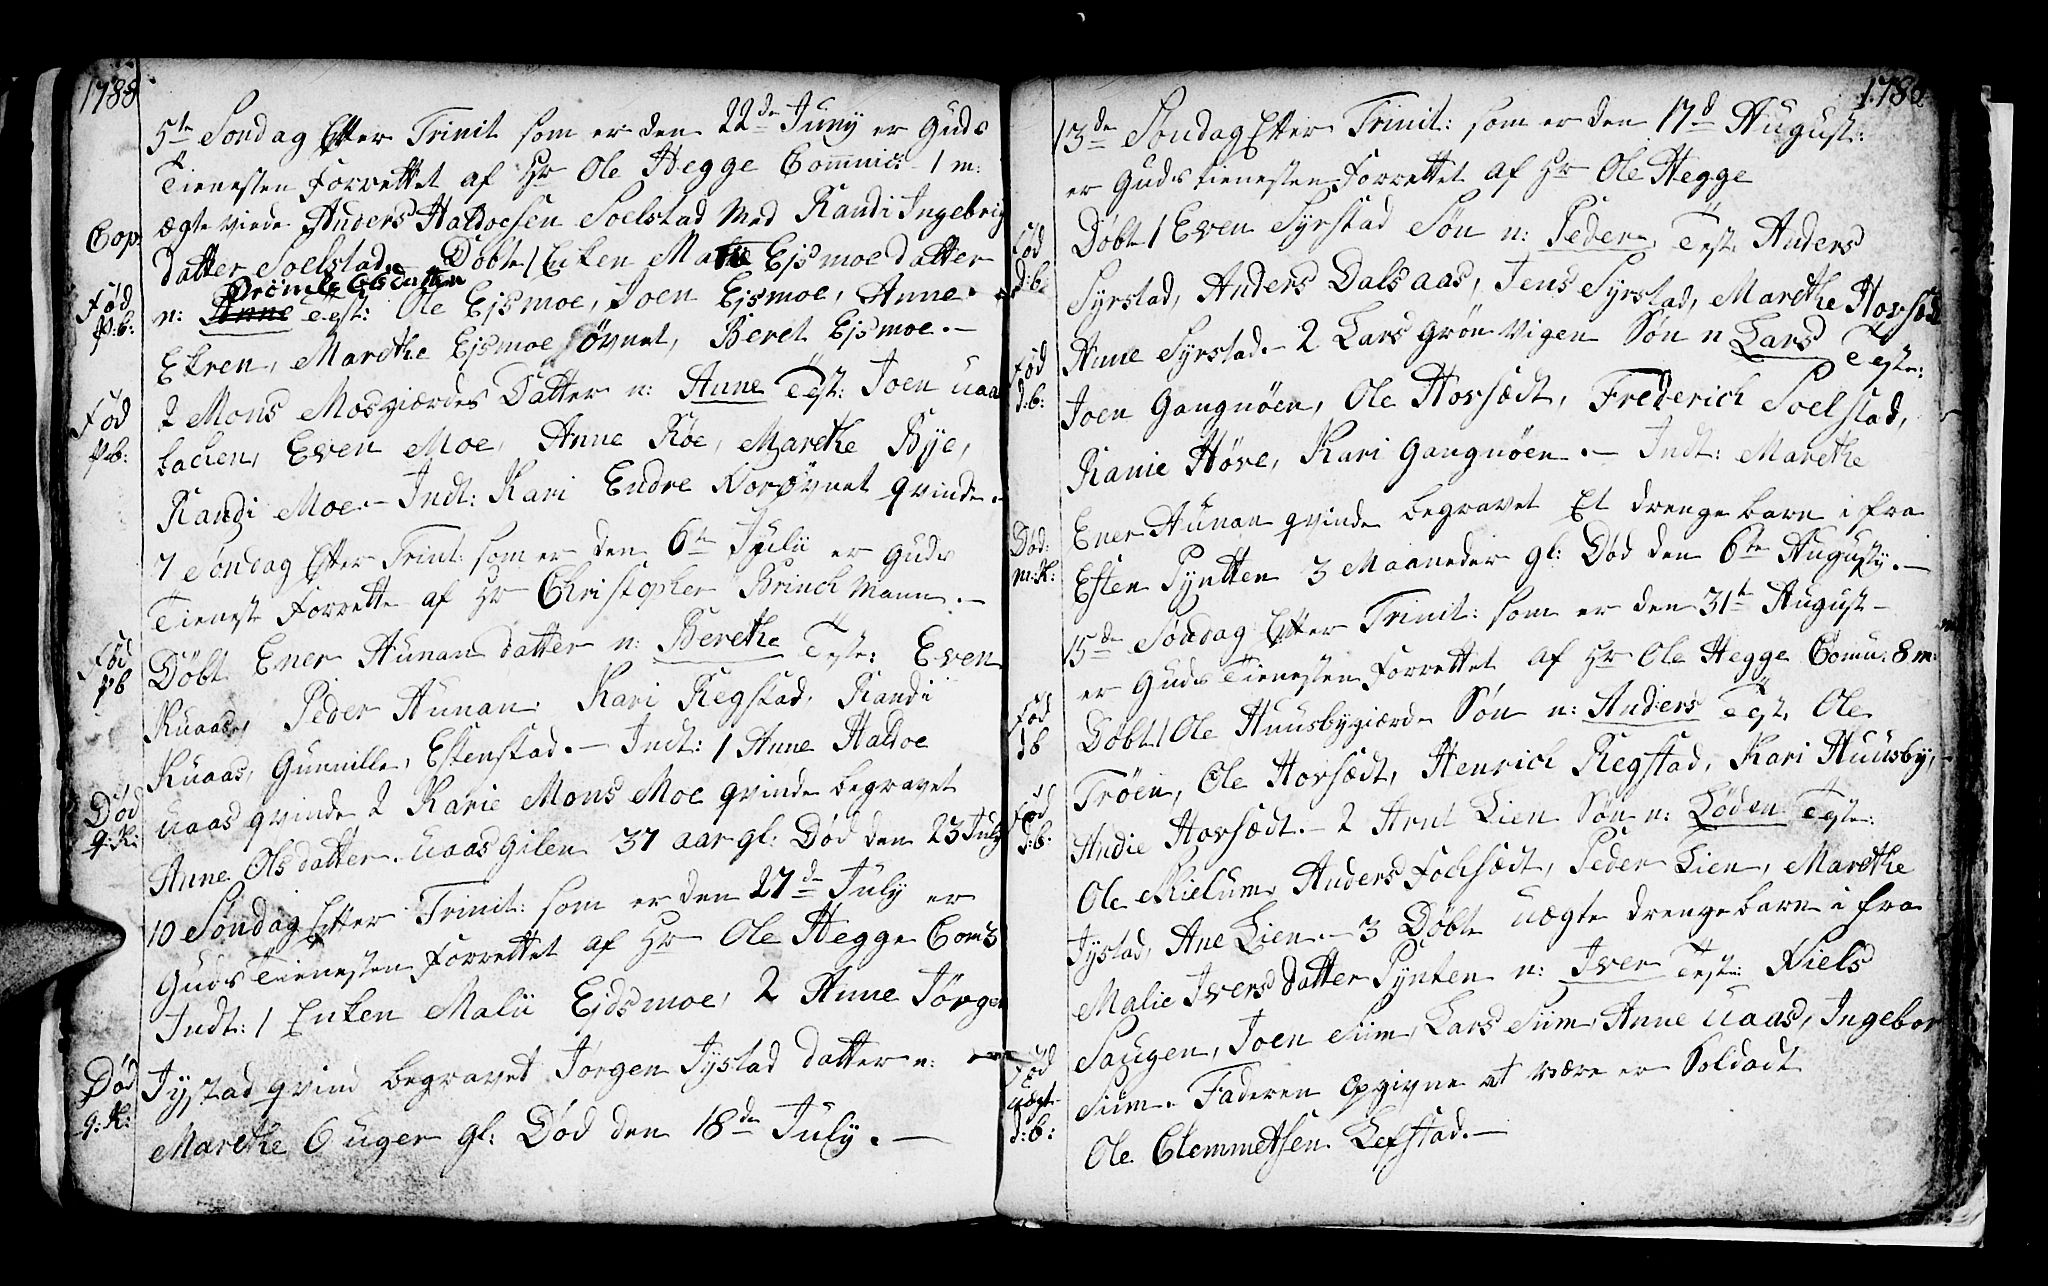 1788
5te Söndag Efter Trinit som er den 22de Juny er Guds
Tienesten Forrettet af Hr Ole Hegge Comnic: 1 m:
Cop: ægte viede Anders Haldoesen Soelstad med Randi Ingebrig
datter Soelstad. Döbt 1 Enken Ejsmoe datter
Födt
p:b:
n: Anne Test: Ole Ejsmoe, Joen Ejsmoe, Anne
Ekren, Marethe Ejsmoe sövnet, Beret Ejsmoe.—
Föd
p:b:
2 Mons Mosgiærdes Datter n: Anne Test: Joen uaas
backen, Even Moe, Anne Röe, Marethe Bye,
Randi Moe.— Indt: Kari Endre Norövnet qvinde.
7 Söndag Efter Trint: som er den 6te Julii er Guds
Tieneste Forrette af Hr Christopher Brinch mann.—
Föd
pb
Döbt Ener Hunan datter n: Berethe Test: Even
Kuaas, Peder Hunan, Kari Regstad, Randi
Kuaas, Gunnille, Estenstad.— Indt: 1 Anne Haldoe
uaas qvinde 2 Karie Mons Moe qvinde begravet
Död
q:K:
Anne Olsdatter uaasgilen 37 aar gl: Död den 23 July
10 Söndag Efter Trinit: som er den 27de July er
Guds Tienesten Forrettet af Hr Ole Hegge Com 3
Indt: 1 Enken Malii Ejdsmoe, 2 Anne Jörgen
Död
q:K:
Jystad qvind begravet Jörgen Jystad datter n:
Marethe 6 uger gl: Död den 18de July.—
178
13de Söndag Efter Trinit: som er den 17d August:
er Guds tienesten Forrettet af Hr Ole Hegge
Föd
d:b:
Döbt 1 Even Syrstad Sön n: Peder, Test Anders
Syrstad, Anders Dalsaas, Jens Syrstad, Marethe Hovsæd
Anne Syrstad.— 2 Lars Grönvigen Sön n Lars Teste:
Föd
d:b:
Joen Gangnöen, Ole Hovsædt, Frederich Soelstad,
Ranie Höve, Kari Gangnöen.— Indt: Marethe
Ener Hunan qvinde begravet Et drengebarn i fra
Död:
m:K:
Esten Pyntten 3 Maaneder gl: Död den 6te Augusty.—
15de Söndag Efter Trinit: som er den 31te August—
er Guds Tienesten Forrettet af Hr Ole Hegge Comu: 8 m:
Föd
db
Döbt 1 Ole Huusbygiærde Sön n: Anders Test, Ole
Tröen, Ole Hovsædt, Henrich Regstad, Kari Huusby,
Föd
d:b:
Andie Hovsædt.— 2 Arnt Lien Sön n: Löden Teste:
Ole Kielum, Anders Fochsædt, Peder Lien, Marethe
Jystad, Ane Lien.— 3 Döbt uægte drengebarn i fra
Malie Ivers Datter Pynten n: Iver Test: Niels
Saugen, Joen Siim, Lars Siim, Anne uaas, Ingebor
Föd
uægt
d:b:
Siim. Faderen opgivne at være er Soldadt
Ole Clemmetsen Lefstad.—